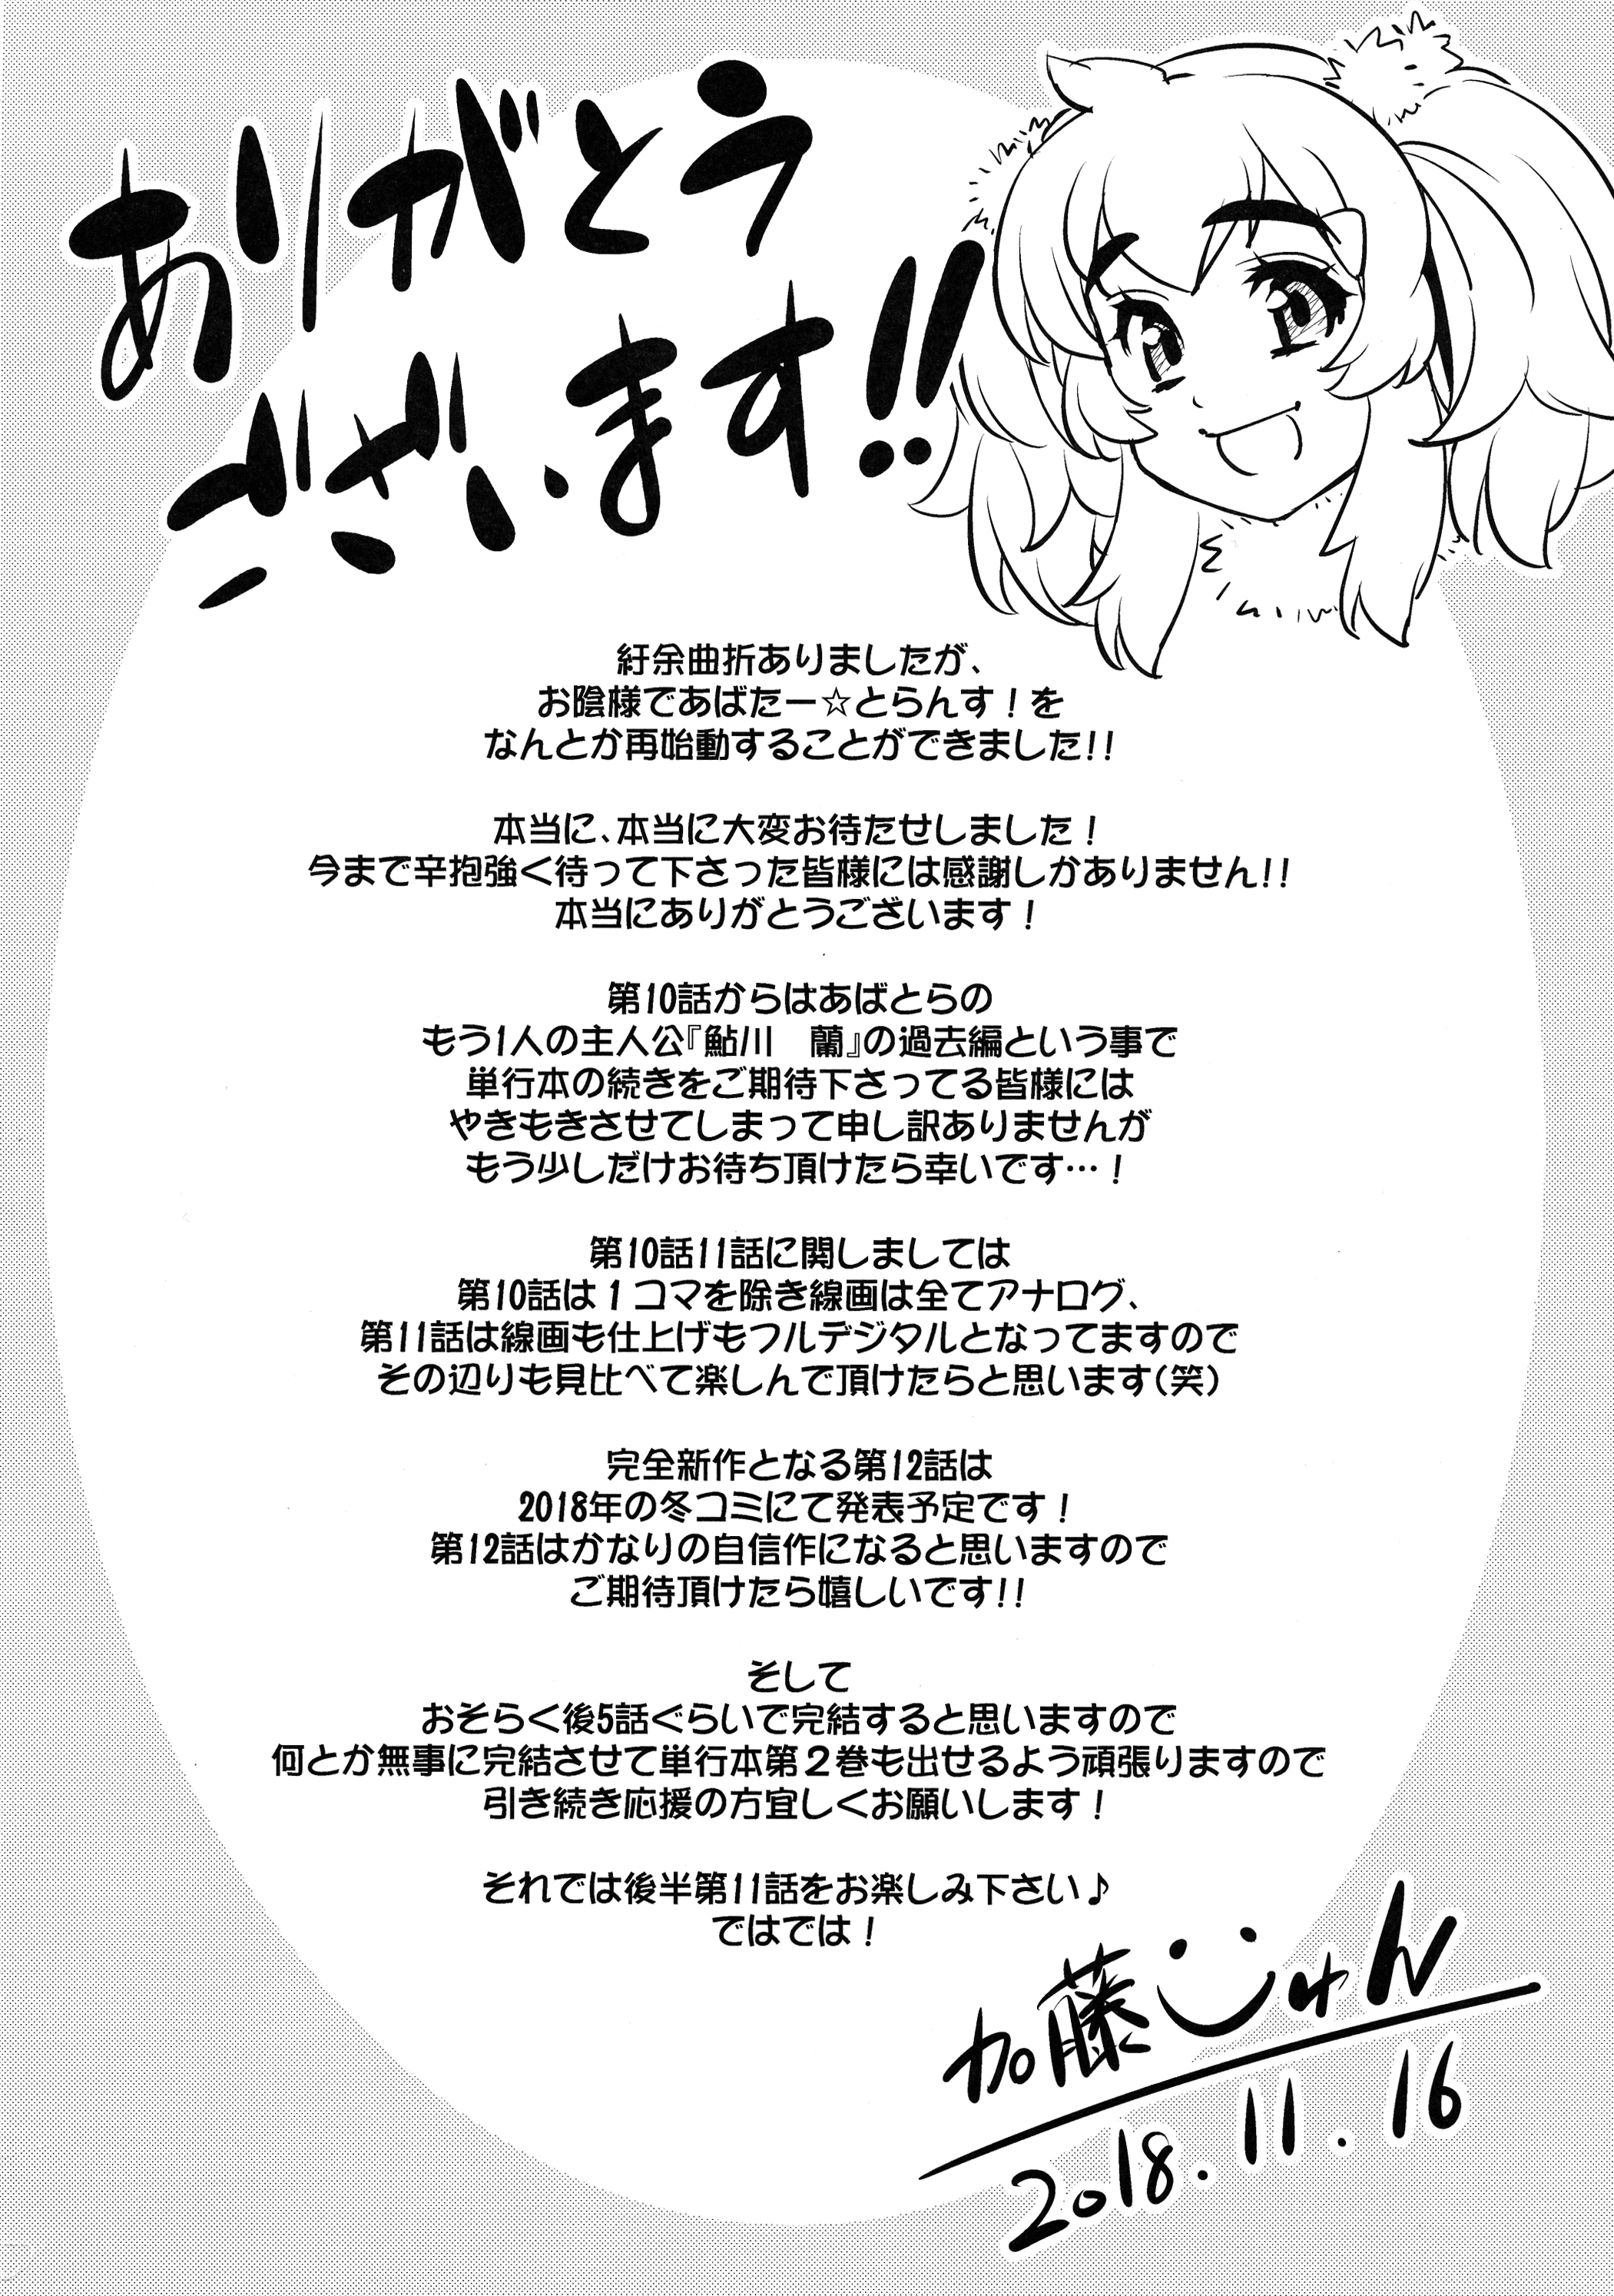 ありがとう
ございます!!
紆余曲折ありましたが、
お陰様であばたー☆とらんす！を
なんとか再始動することができました!!
本当に、本当に大変お待たせしました！
今まで辛抱強く待って下さった皆様には感謝しかありません!!
本当にありがとうございます！
第10話からはあばとらの
もう1人の主人公『鮎川　蘭』の過去編という事で
単行本の続きをご期待下さってる皆様には
やきもきさせてしまって申し訳ありませんが
もう少しだけお待ち頂けたら幸いです…！
第10話11話に関しましては
第10話は１コマを除き線画は全てアナログ、
第11話は線画も仕上げもフルデジタルとなってますので
その辺りも見比べて楽しんで頂けたらと思います(笑)
完全新作となる第12話は
2018年の冬コミにて発表予定です！
第12話はかなりの自信作になると思いますので
ご期待頂けたら嬉しいです!!
そして
おそらく後5話ぐらいで完結すると思いますので
何とか無事に完結させて単行本第２巻も出せるよう頑張りますので
引き続き応援の方宜しくお願いします！
それでは後半第11話をお楽しみ下さい♪
ではでは！
加藤じゅん
2018.11.16